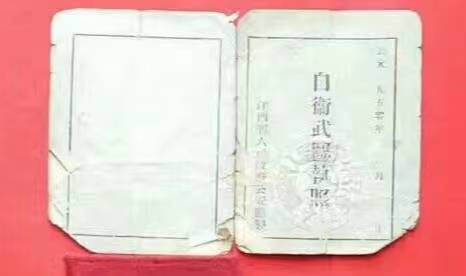 公元一九五零年 月 日
自衛武器執照
江西省人民政府公安廳製